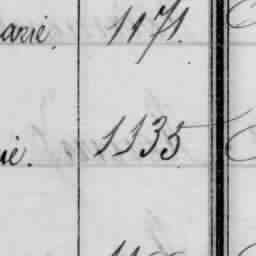 arie. 1171.
ie. 1135